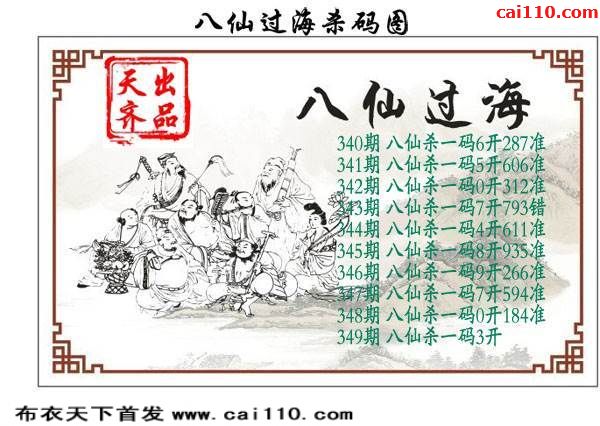 八仙过海杀码图
cai110.com
天出
齐品
八仙过海
340期 八仙杀一码6开287准
341期 八仙杀一码5开606准
342期 八仙杀一码0开312准
343期 八仙杀一码7开793错
344期 八仙杀一码4开611准
345期 八仙杀一码8开935准
346期 八仙杀一码9开266准
347期 八仙杀一码7开594准
348期 八仙杀一码0开184准
349期 八仙杀一码3开
布衣天下首发 www.cai110.com